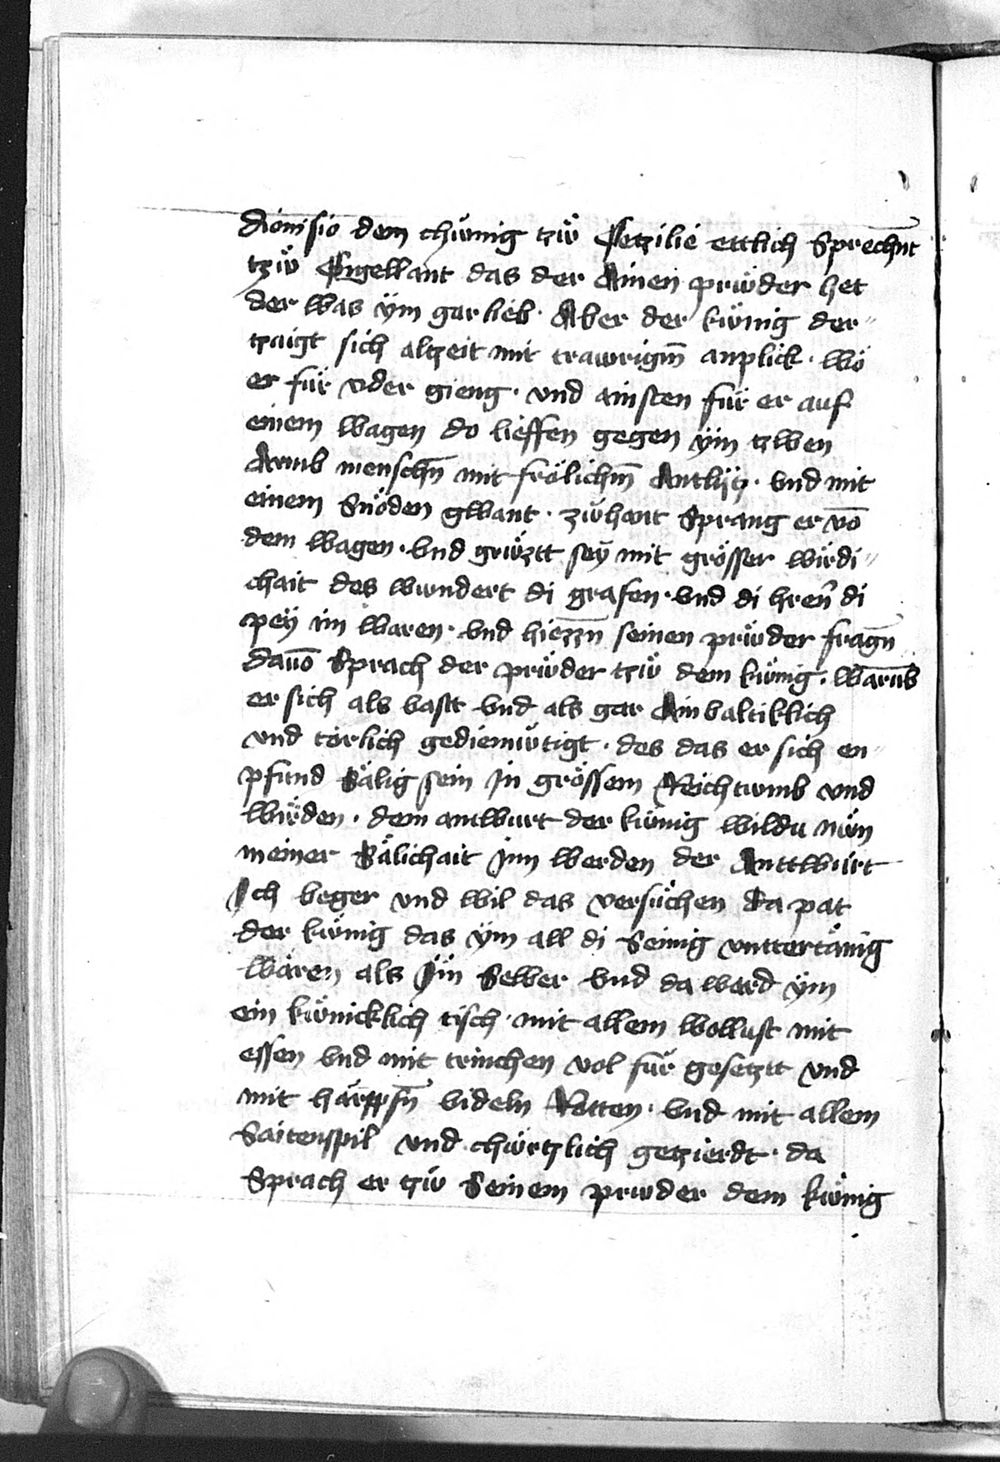 dionisio dem chünig tzü Setzilie ettlich Sprechn̄t
tzü Engellant das der Ainen prüder het
der was ÿm gar lieb · Aber der künig der=
tzaigt sich altzeit mit trawrigm̄ anplick · wo
er für oder gieng · vnd ainsten für er auf
einem wagen do lieffen gegen ÿm tzwen
Armb menschn̄ mit frölichm̄ Antlütz · vnd mit
einem Snöden gwant · zühant Sprang er vō
dem wagen · vnd grüztt seÿ mit grösser wirdi=
chait des wundert di grafen · vnd di hren̄ di
peÿ im waren · vnd hiezzn̄ seinen prüder fragn̄
dauō Sprach der prüder tzü dem künig · warūb
er sich als vast vnd als gar Ainualtiklich
vnd törlich gediemütigt · des das er sich en=
pfund Sälig sein Jn grössem Reichtumb vnd
wirden · dem antwurt der künig wildu nün
meiner Sälichait Jnn werden der Anttwürt
Jch beger vnd wil das versüchen da pat
der künig das ÿm all di Seinig vnttertänig
wären als Jm Selber vnd da ward ÿm
ein künicklich tisch · mit allem wollust mit
essen vnd mit trinchen vol für gesetztt vnd
mit härppfn̄ videln Rotten · vnd mit allem
Saitenspil vnd chürtzlich getzierdt · da
Sprach er tzü Seinem prüder dem künig